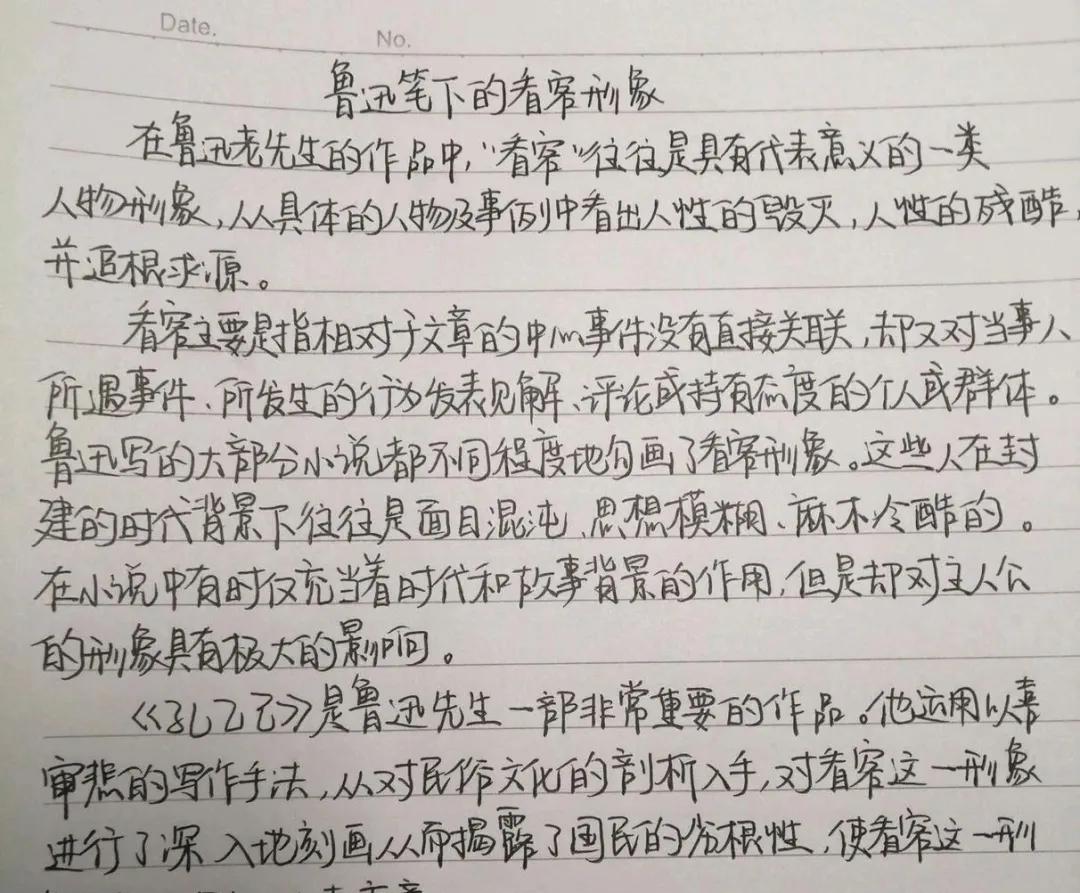 Date.
No.
鲁迅笔下的看客形象
在鲁迅老先生的作品中，“看客”往往是具有代表意义的一类
人物形象，从具体的人物及事例中看出人性的毁灭，人性的残酷，
并追根求源。
看客主要是指相对于文章的中心事件没有直接关联，却又对当事人
所遇事件、所发生的行为发表见解、评论或持有态度的个人或群体。
鲁迅写的大部分小说都不同程度地勾画了看客形象。这些人在封
建的时代背景下往往是面目混沌、思想模糊、麻木冷酷的。
在小说中有时仅充当着时代和故事背景的作用，但是却对主人公
的形象具有极大的影响。
《孔乙己》是鲁迅先生一部非常重要的作品。他运用以喜
审悲的写作手法，从对民俗文化的剖析入手，对看客这一形象
进行了深入地刻画从而揭露了国民的劣根性，使看客这一形